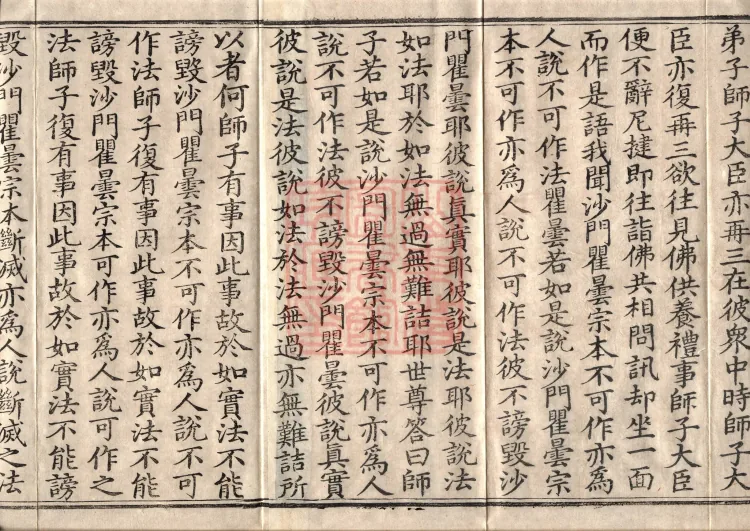 弟子師子大臣亦再三在彼衆中時師子大
臣亦復再三欲往見佛供養禮事師子大臣
便不辭尼揵即往詣佛共相問訊却坐一面
而作是語我聞沙門瞿曇宗本不可作亦爲
人說不可作法瞿曇若如是說沙門瞿曇宗
本不可作亦爲人說不可作法彼不謗毀沙
門瞿曇耶彼說真實耶彼說是法耶彼說法
如法耶於如法無過無難詰耶世尊答曰師
子若如是說沙門瞿曇宗本不可作亦爲人
說不可作法彼不謗毀沙門瞿曇彼說真實
彼說是法彼說如法於法無過亦無難詰所
以者何師子有事因此事故於如實法不能
謗毀沙門瞿曇宗本不可作亦爲人說不可
作法師子復有事因此事故於如實法不能
謗毀沙門瞿曇宗本可作亦爲人說可作之
法師子復有事因此事故於如實法不能謗
毀沙門瞿曇宗本斷滅亦爲人說斷滅之法